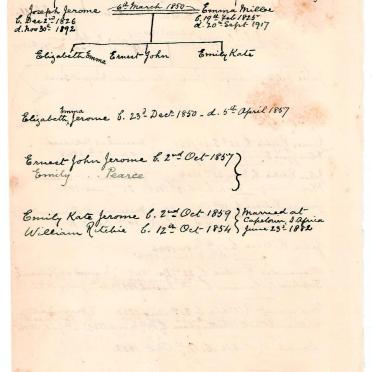 Joseph Jerome 6th March 1850 Emma
b. Dec 2nd 1826 b. 19th Feb 1825
d. Nov 30th 1892 d. 20th Sept 1917
Elizabeth Emma Ernest John Emily Kate
Elizabeth Emma Jerome b. 23d Decr 1850 - d. 5th April 1857
Ernest John Jerome b. 2nd Oct 1857 }
Emily .. Pearce
Emily Kate Jerome b. 2nd Oct 1859 } Married at
William Ritchie b. 12th Oct 1854 } Capetown, S. Africa
June 23d 1882